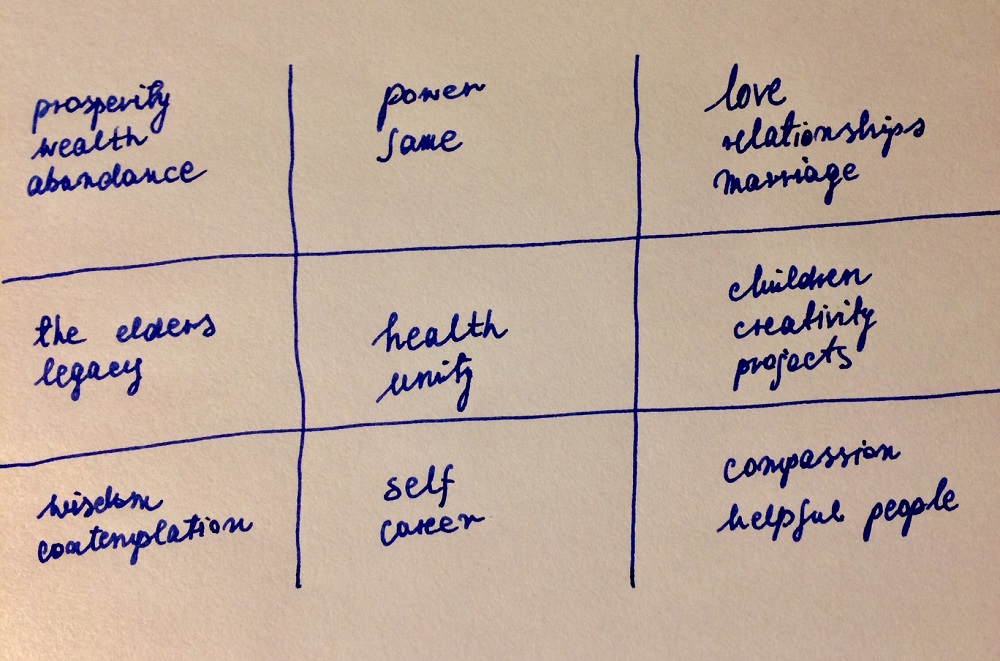 prosperity
wealth
abundance
power
fame
love
relationships
marriage
the elders
legacy
health
unity
children
creativity
projects
wisdom
contemplation
self
career
compassion
helpful people